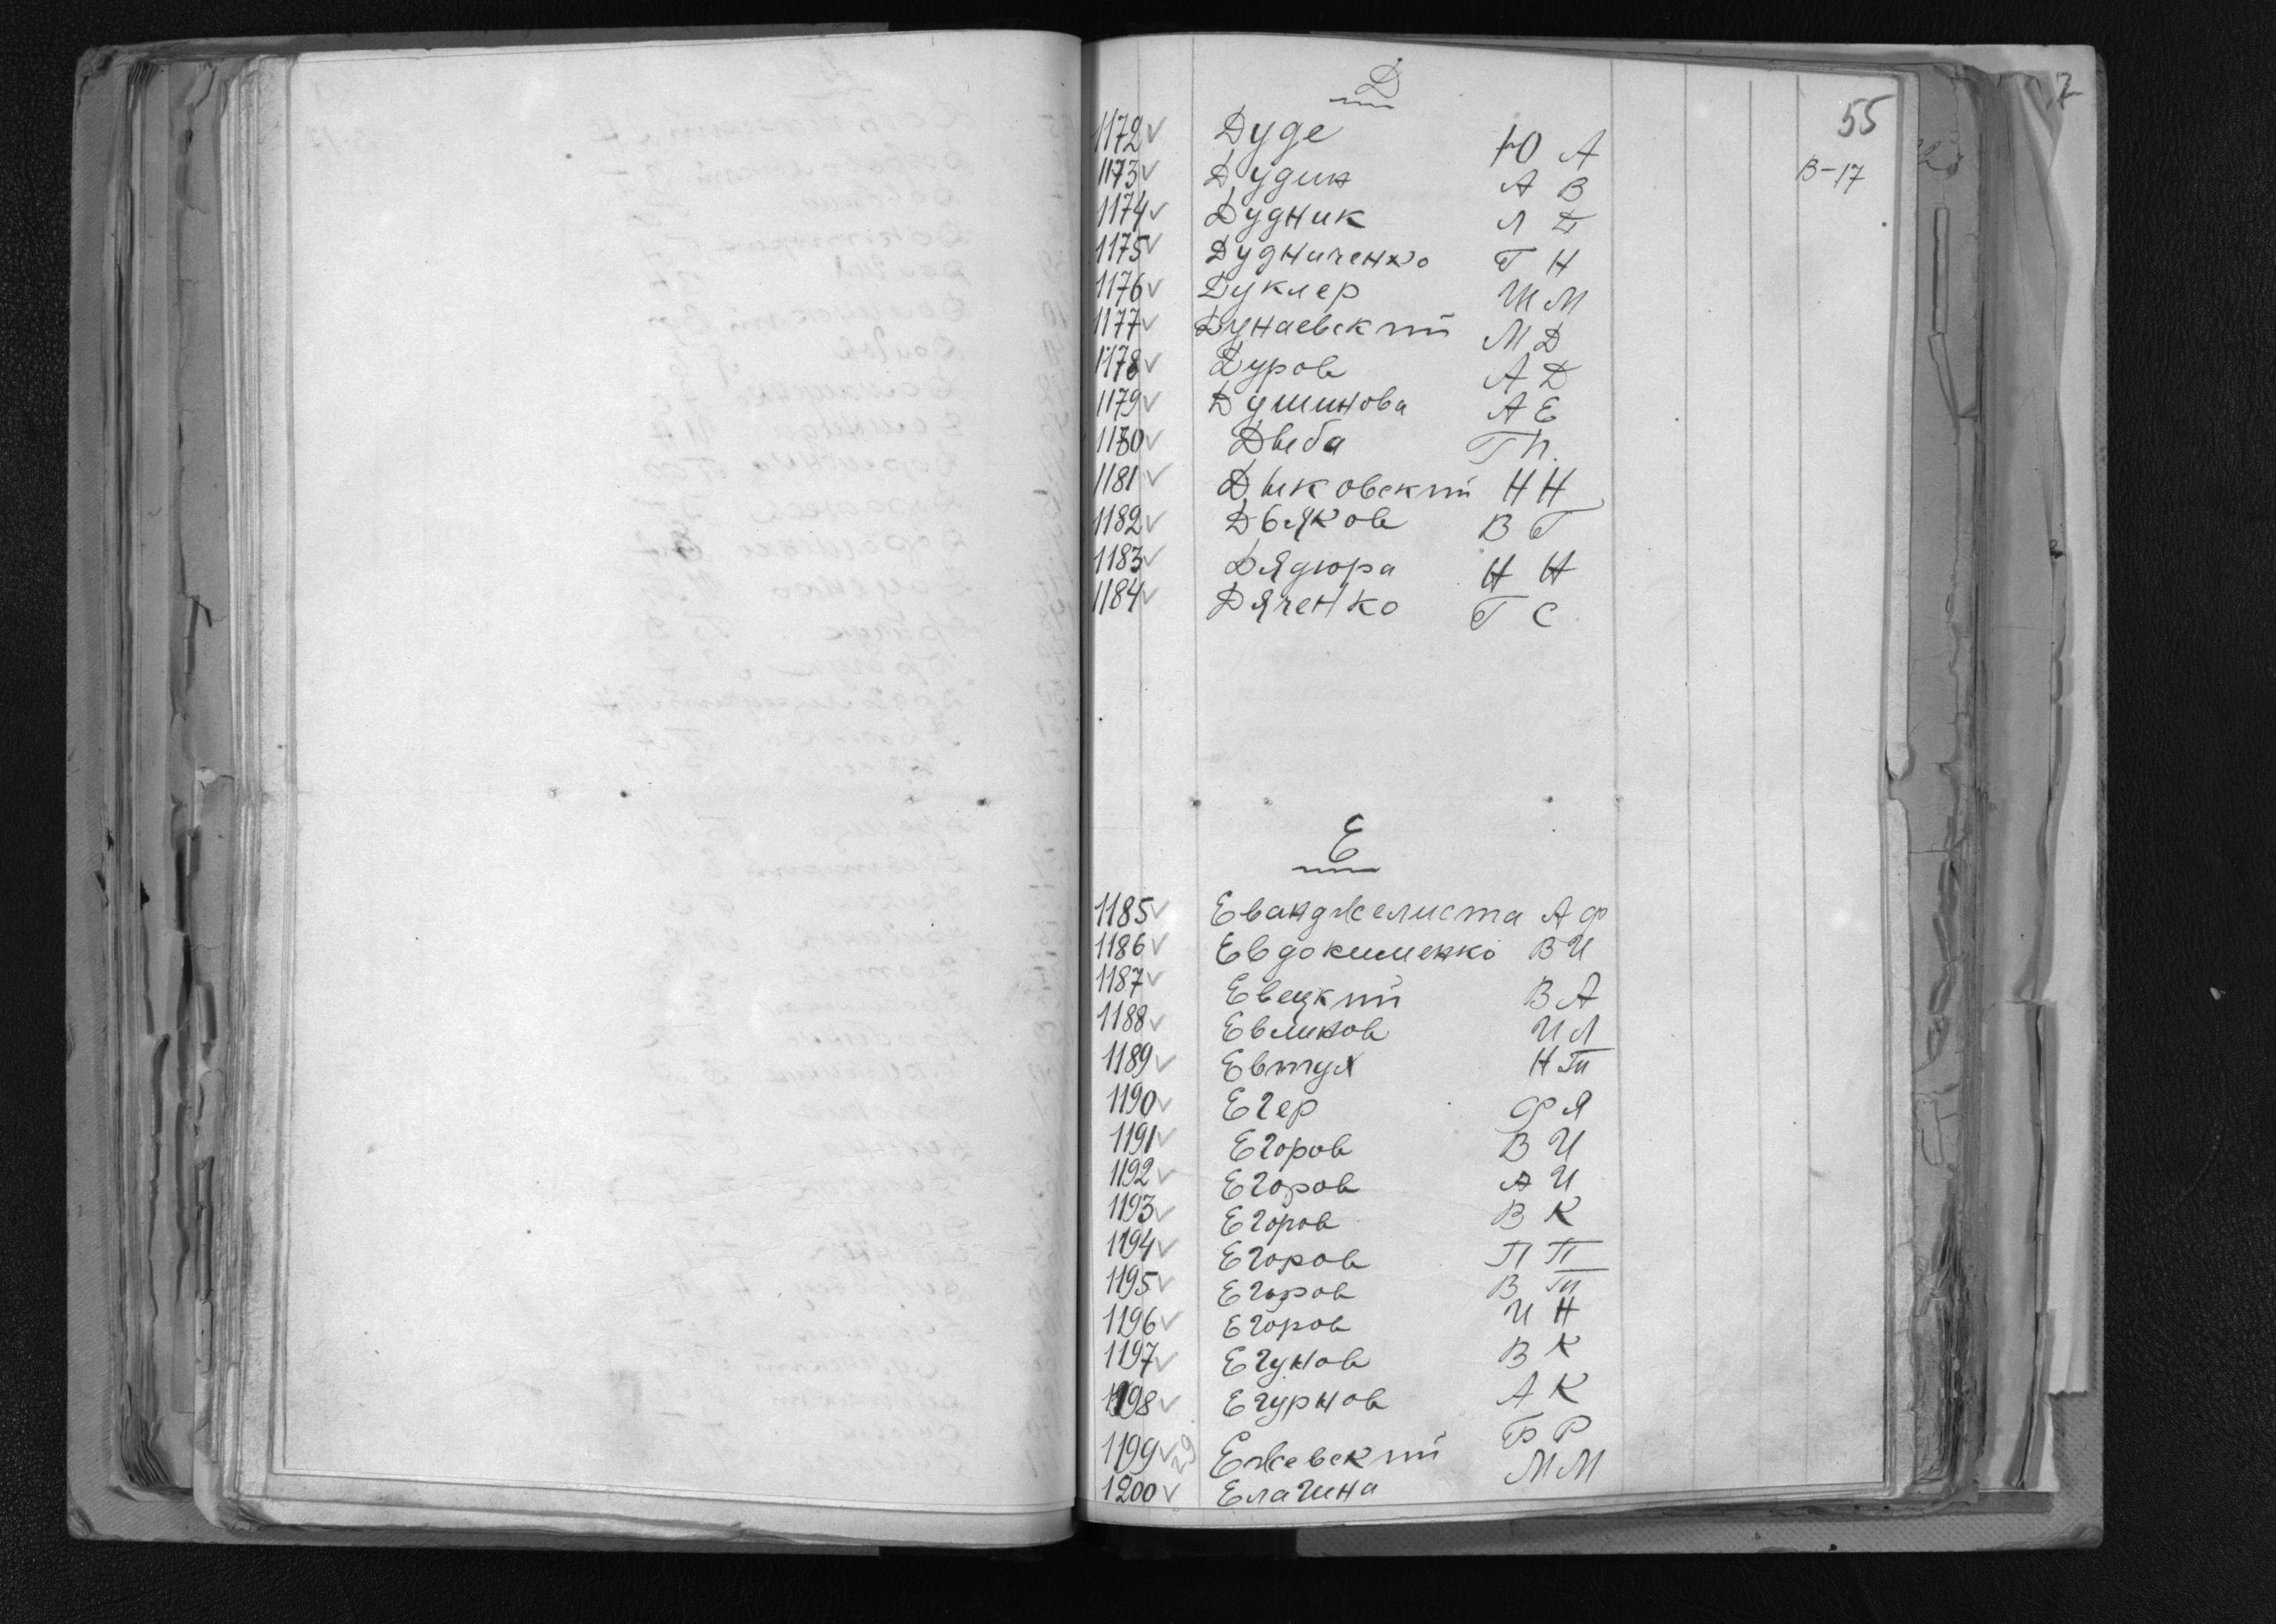 Д
55
В-17
1172 ✓ Дуде Ю А
1173 ✓ Дудин А В
1174 ✓ Дудник Л П
1175 ✓ Дудниченко Г Н
1176 ✓ Дуклер Ш М
1177 ✓ Дунаевский М Д
1178 ✓ Дуров А Д
1179 ✓ Душинова А Е
1180 ✓ Дыба Г П.
1181 ✓ Дыковский Н Н
1182 ✓ Дьяков В Г
1183 ✓ Дядюра Н Н
1184 ✓ Дяченко Г С
Е
1185 ✓ Еванджелиста А Ф
1186 ✓ Евдокименко В И
1187 ✓ Евецкий В А
1188 ✓ Евликов И Л
1189 ✓ Евтух Н Т
1190 ✓ Егер Ф Я
1191 ✓ Егоров В И
1192 ✓ Егоров А И
1193 ✓ Егоров В К
1194 ✓ Егоров П П
1195 ✓ Егоров В Т
1196 ✓ Егоров И Н
1197 ✓ Егунов В К
1198 ✓ Егурнов А К
1199 ✓ 29 Ежевский Б Р
1200 ✓ Елагина М М